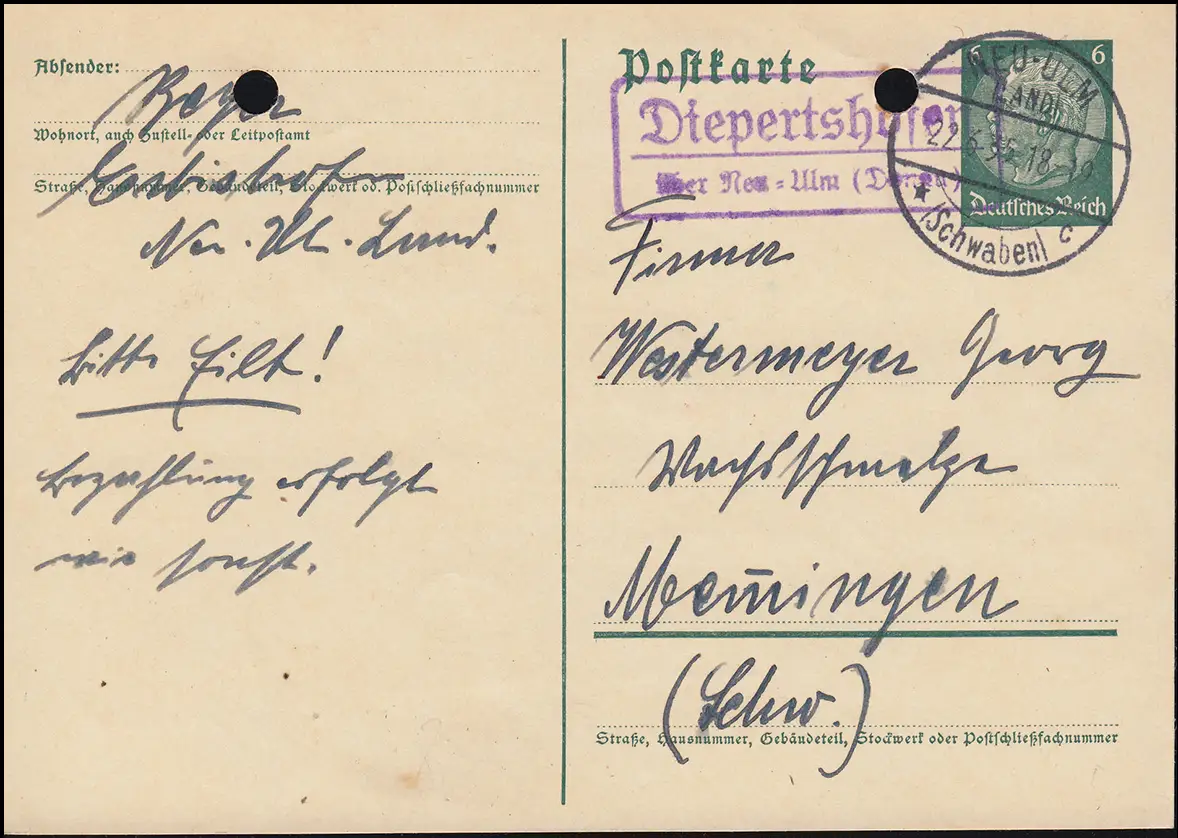 Absender:
Wohnort, auch Zustell- oder Leitpostamt
Straße, Hausnummer, Gebäudeteil, Stockwerk od. Postschließfachnummer
Neu-Ul. Land.
Bitte Eilt!
Bezahlung erfolgt
wie sonst.
Postkarte
6 6
Deutsches Reich
Diepertshofen
über Neu-Ulm (Donau)
NEU-ULM
(LAND)
22.6.35.18-19
* (Schwaben) c
Firma
Westermeyer Georg
Wachsschmelze
Memmingen
(Schw.)
Straße, Hausnummer, Gebäudeteil, Stockwerk oder Postschließfachnummer